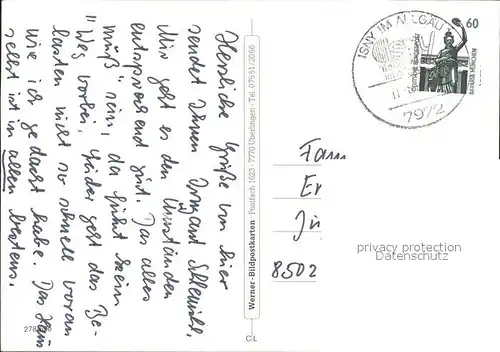 Herzliche Grüße von hier
sendet Ihnen Irmgard
Mir geht es den Umständen
entsprechend gut. Das alles
"muß" sein, da führt kein
Weg vorbei, leider geht das Be-
lasten nicht so schnell voran
wie ich gedacht habe. Das Haus
selbst ist in allem bestens.
278
Werner-Bildpostkarten · Postfach 1623 · 7770 Überlingen · Tel. 07551/2066
CL
ISNY IM ALLGÄU
7972
60
DEUTSCHE BUNDESPOST
BAVARIA MÜNCHEN
Fam
8502
privacy protection
Datenschutz